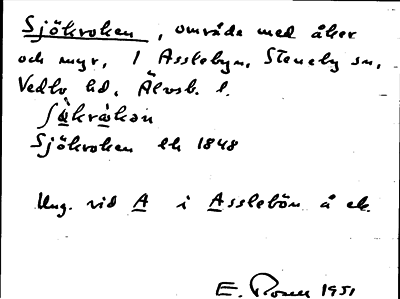 Sjökroken, område med åker
och myr, 1 Asslebyn, Steneby sn,
Vedbo hd, Älvsb. l.
Sjökroken lk 1848
Ung. vid A i Asslebön å ek.
E. 1951